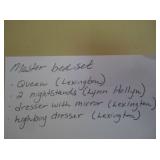 Master bed set
- Queen (Lexington)
- 2 nightstands (Lynn Hollyn)
- dresser with mirror (Lexington
highboy dresser (Lexington)